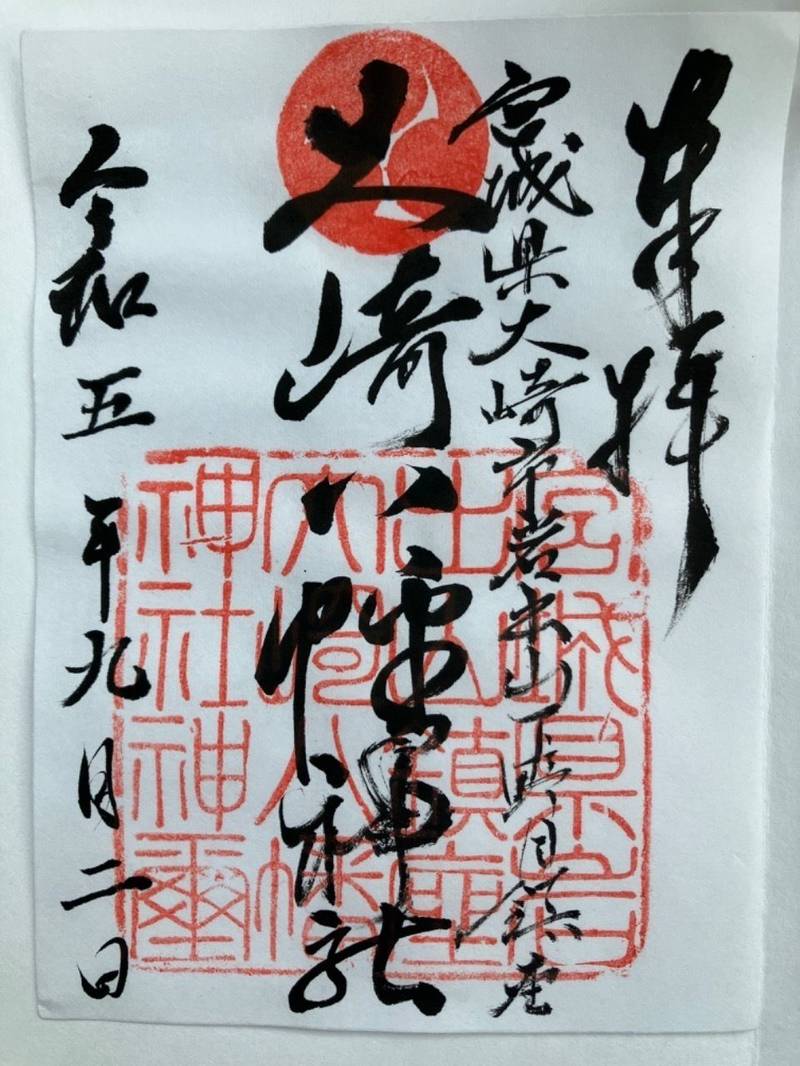 奉拝
宮城県大崎市岩出山下野目鎮座
大崎八幡神社
令和五年九月二日
宮城県岩
出山鎮座
大崎八幡
神社神璽